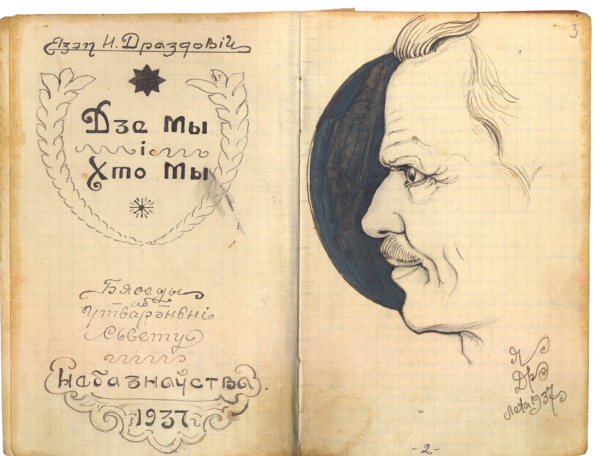 Язэп Н. Драздовіч
Дзе мы
і
Хто мы
Бяседы
аб
утварэньні
сьвету
Небазнаўства.
1937
3
Я
Др
лета 1937
-2-